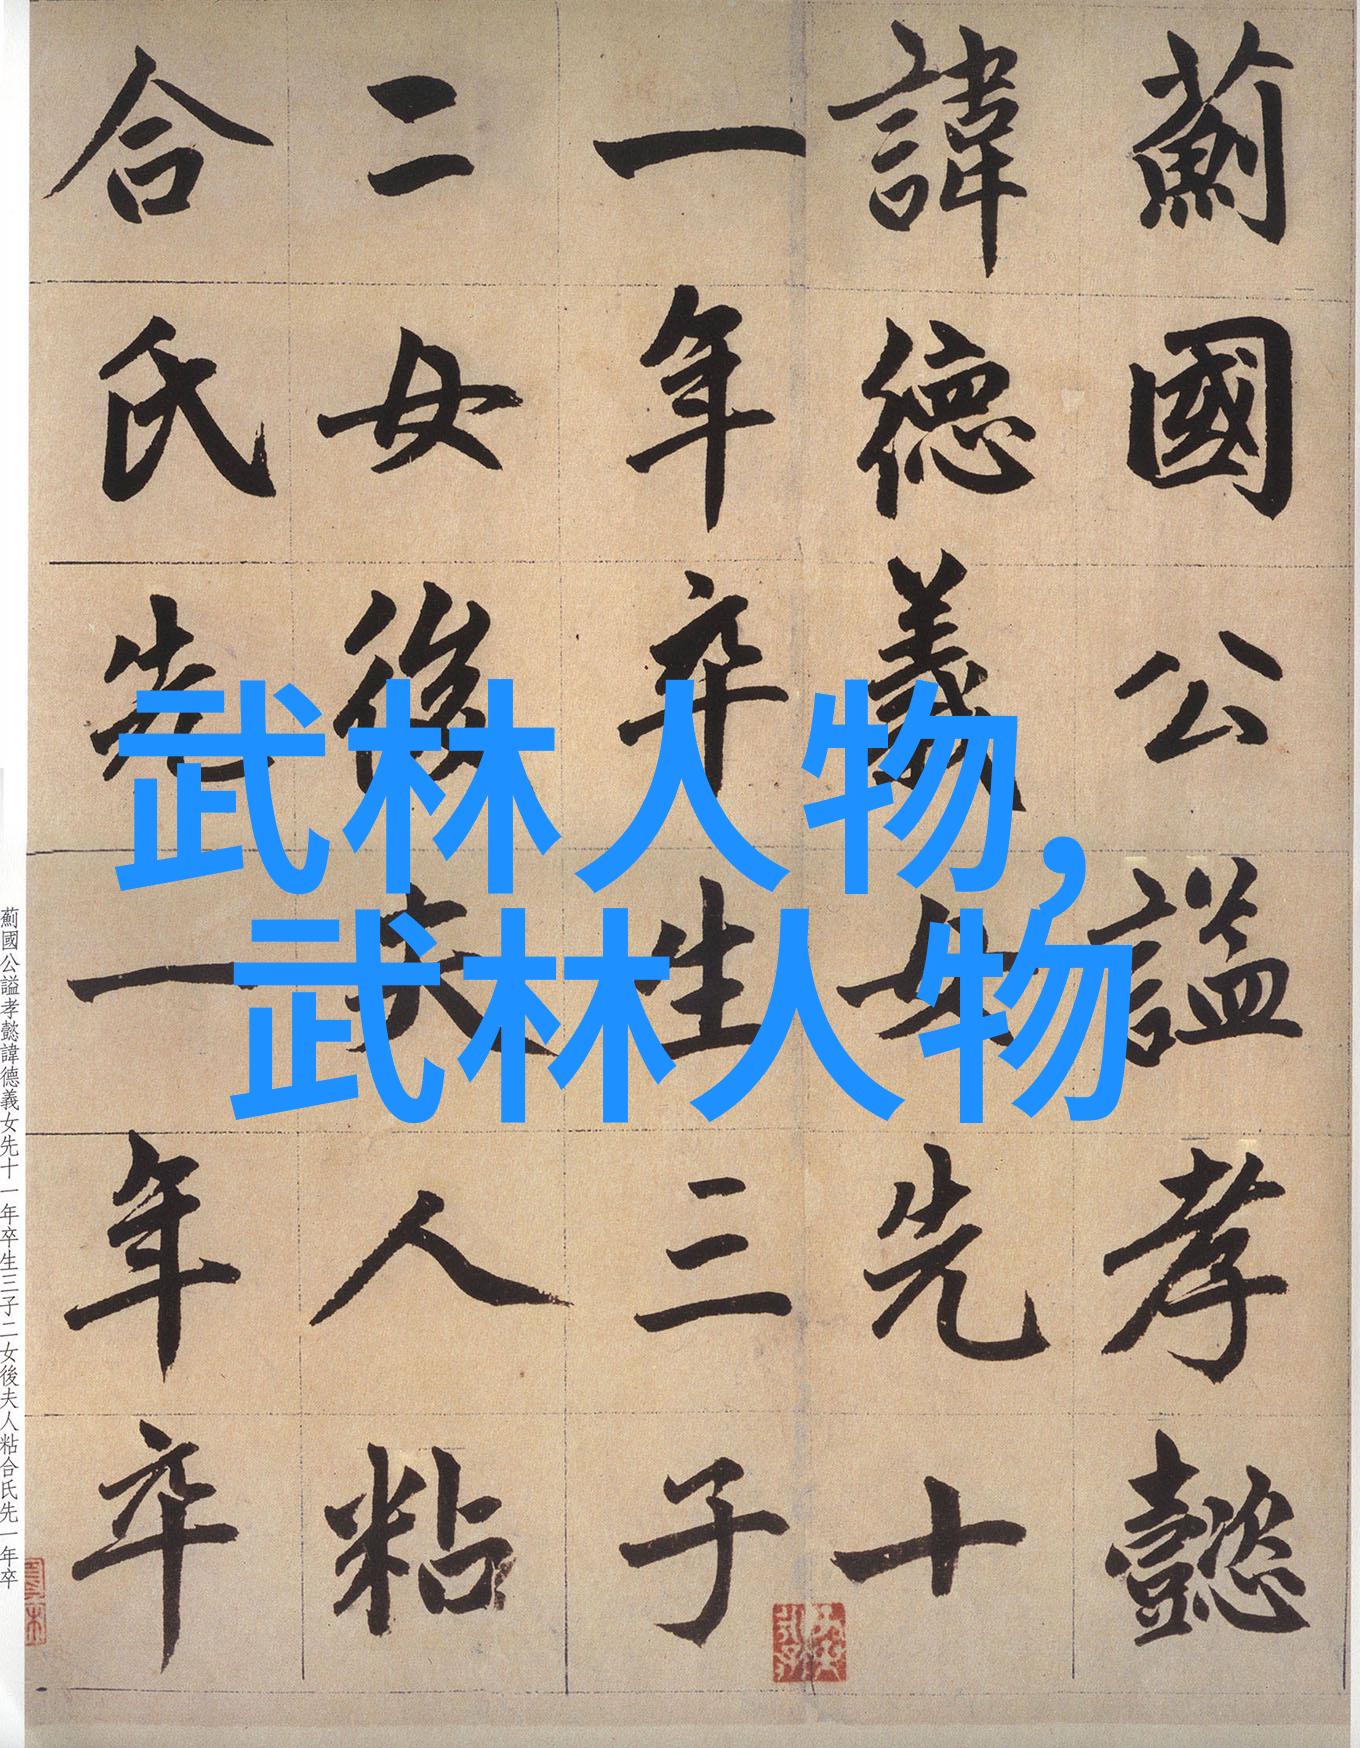 薊國公謚孝懿
諱德義女先十
一年卒生三子
二女後夫人粘
合氏先一年卒
武林人物,
武林人物
薊國公謚孝懿諱德義女先十一年卒生三子二女後夫人粘合氏先一年卒